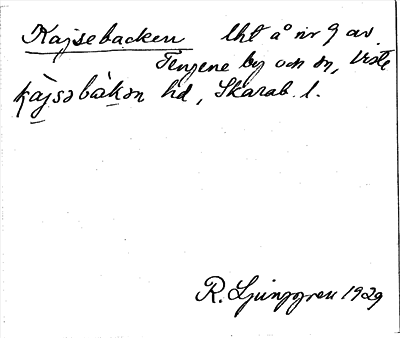 Kajsebacken lht å nr 9 av
Tengene by och sn, Viste
kàjsəbàkən hd, Skarab. l.
R. Ljunggren 1929